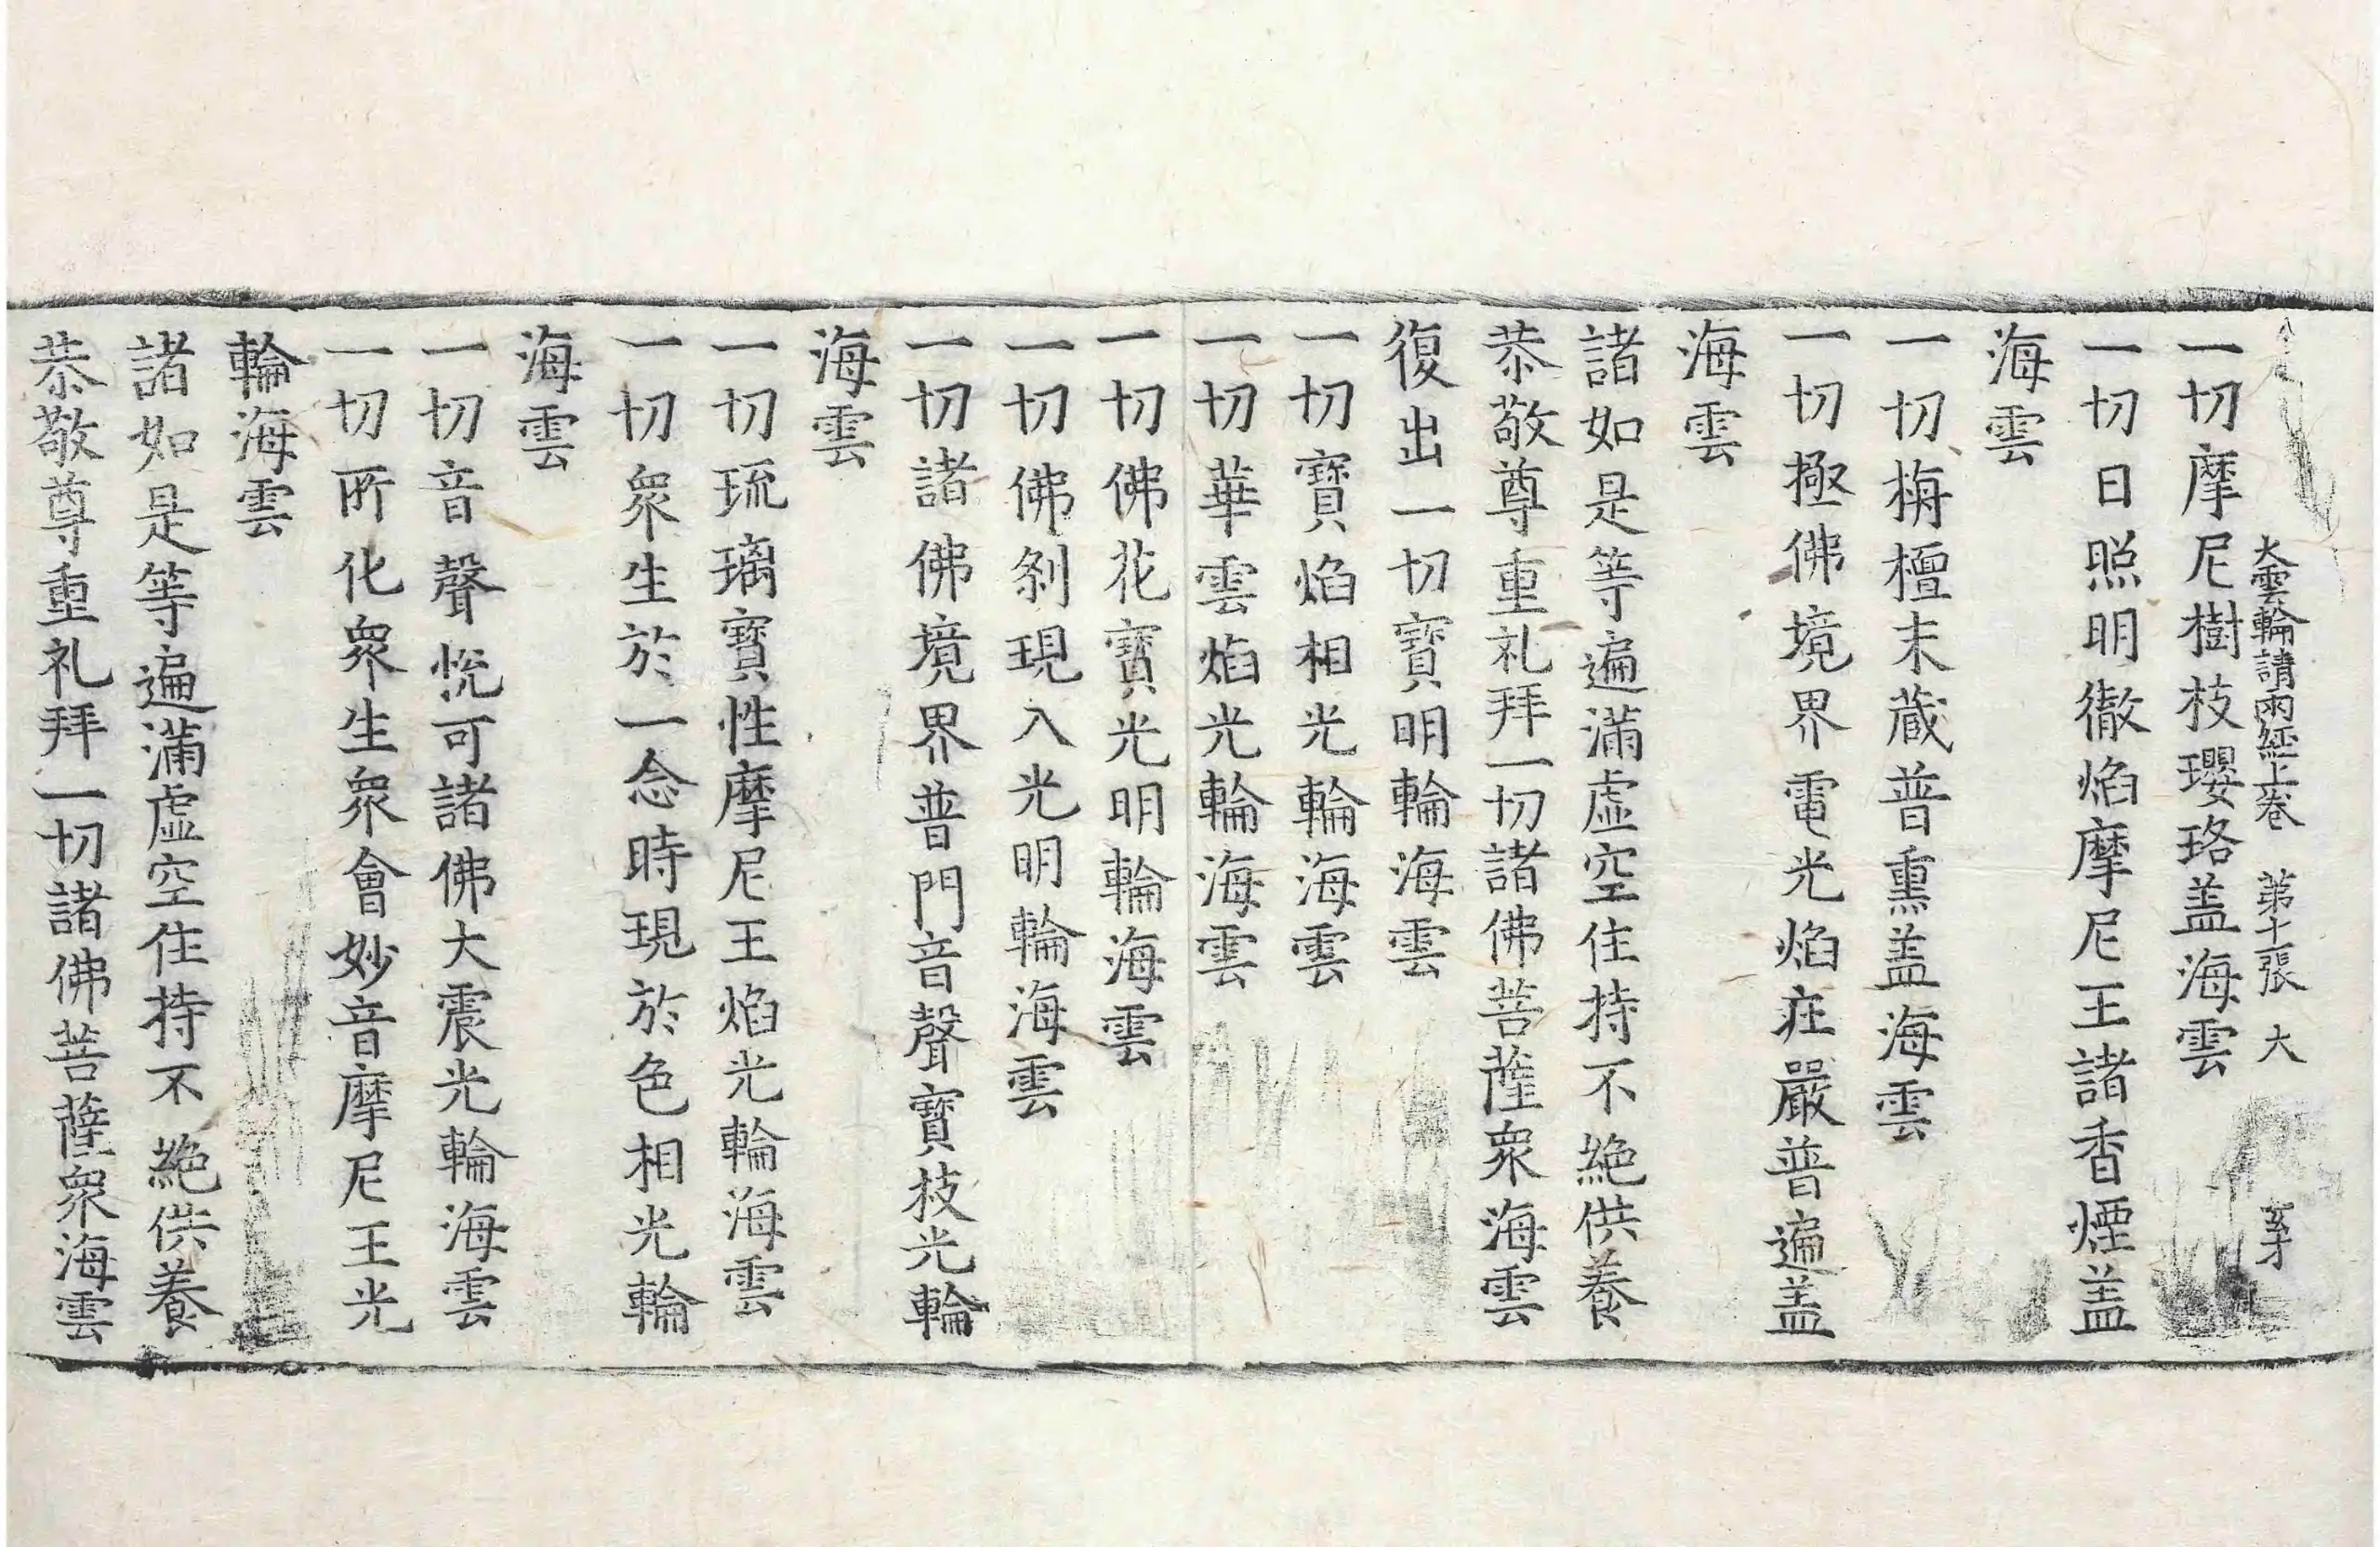 大雲輪請雨経上卷 第十張 大
一切摩尼樹枝瓔珞盖海雲
一切日照明徹焰摩尼王諸香煙盖
海雲
一切栴檀末蔵普熏盖海雲
一切極佛境界電光焰庄嚴普遍盖
海雲
諸如是等遍滿虛空住持不絶供養
恭敬尊重礼拜一切諸佛菩薩衆海雲
復出一切寶明輪海雲
一切寶焰相光輪海雲
一切華雲焰光輪海雲
一切佛花寶光明輪海雲
一切佛刹現入光明輪海雲
一切諸佛境界普門音聲寶枝光輪
海雲
一切琉璃寶性摩尼王焰光輪海雲
一切衆生於一念時現於色相光輪
海雲
一切音聲悦可諸佛大震光輪海雲
一切所化衆生衆會妙音摩尼王光
輪海雲
諸如是等遍滿虛空住持不絶供養
恭敬尊重礼拜一切諸佛菩薩衆海雲